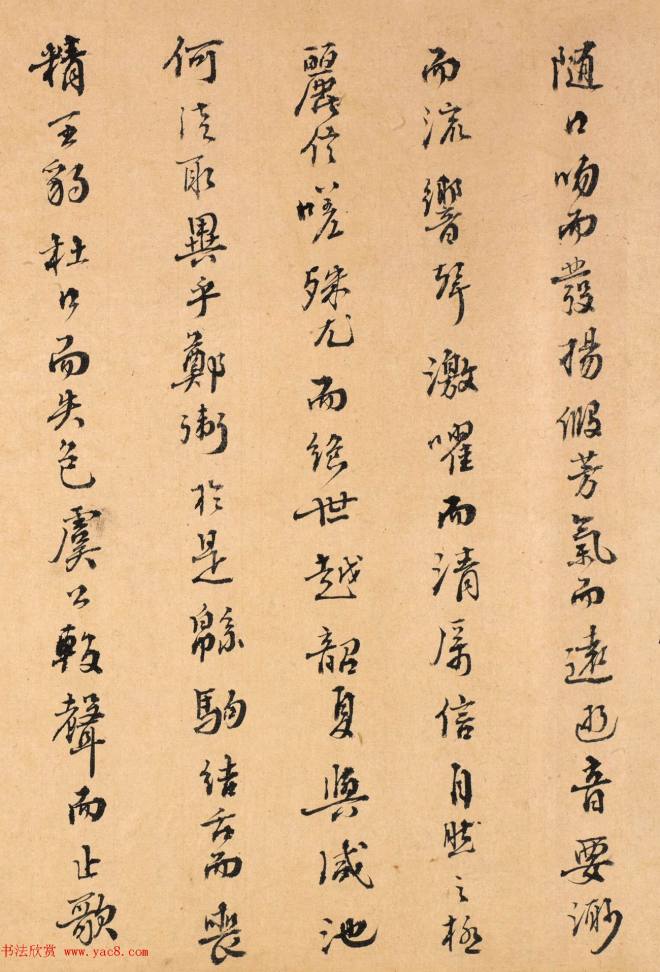 隨口吻而發揚假芳氣而遠逝音要渺
而流響聲激嚁而清厲信自然之極
麗嗟殊尤而絕世越韶夏與咸池
何徒取異乎鄭衛於是緜駒結舌而喪
精王豹杜口而失色虞公輟聲而止歌
书法欣赏 www.yac8.com